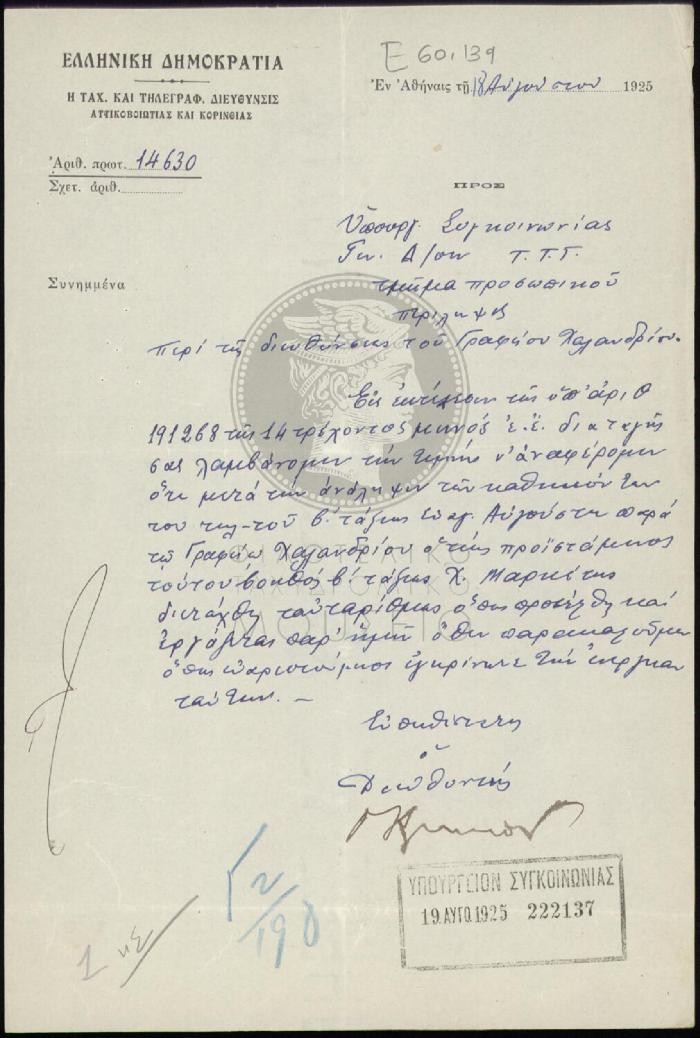 Ε 60.139
ΕΛΛΗΝΙΚΗ ΔΗΜΟΚΡΑΤΙΑ
Η ΤΑΧ. ΚΑΙ ΤΗΛΕΓΡΑΦ. ΔΙΕΥΘΥΝΣΙΣ
ΑΤΤΙΚΟΒΟΙΩΤΙΑΣ ΚΑΙ ΚΟΡΙΝΘΙΑΣ
Ἐν Ἀθήναις τῇ 18 Αὐγούστου 1925
Ἀριθ. πρωτ. 14630
Σχετ. ἀριθ.
ΠΡΟΣ
Ὑπουργ. Συγκοινωνίας
Γεν. Δ/σιν Τ.Τ.Τ.
τμῆμα προσωπικοῦ
Συνημμένα
περίληψις
περὶ τῆς διευθύνσεως τοῦ Γραφείου Χαλανδρίου.
Εἰς ἐκτέλεσιν τῆς ὑπ' ἀριθ
191268 τῆς 14 τρέχοντος μηνός ἐ.ἔ. διαταγῆς
σας λαμβάνομεν τὴν τιμὴν ν' ἀναφέρομεν
ὅτι μετὰ τὴν ἀνάληψιν τῶν καθηκόντων
του τηλ-τοῦ β' τάξεως Εὐαγ. Αὐγούστη παρὰ
τῷ Γραφείῳ Χαλανδρίου ὁ τέως προϊστάμενος
τούτου βοηθὸς β' τάξεως Χ. Μαρκέτης
διετάχθη ταὐταρίθμως ὅπως προσέλθῃ καὶ
ἐργάζεται παρ' ἡμῖν ὅθεν παρακαλοῦμεν
ὅπως εὐαρεστούμενος ἐγκρίνητε τὴν ἐνέργειαν
ταύτην. —
Εὐπειθέστατος
ὁ
Διευθυντής
ΥΠΟΥΡΓΕΙΟΝ ΣΥΓΚΟΙΝΩΝΙΑΣ
19 ΑΥΓΟ.1925 222137